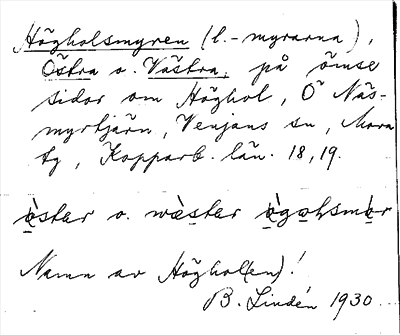 Högholsmyren (l. -myrarna),
Östra o. Västra, på ömse
sidor om Höghol, Ö Näs-
myrtjärn, Venjans sn, Mora
tg, Kopparb. län. 18, 19.
o. 
Namn av Höghol(en)!
B. Lindén 1930